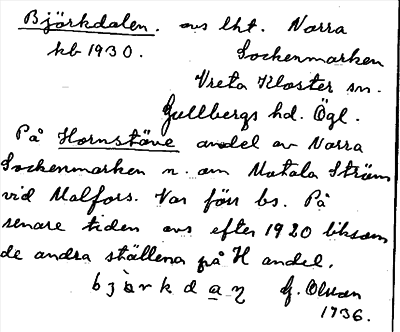 Björkdalen. avs lht. Norra
kb 1930. Sockenmarken
Vreta Kloster sn.
Gullbergs hd. Ögl.
På Hornstäve andel av Norra
Sockenmarken n. om Motala Ström
vid Malfors. Var förr bs. På
senare tiden avs efter 1920 liksom
de andra ställena på H andel.
björkdaɳ G. Olson
1936.